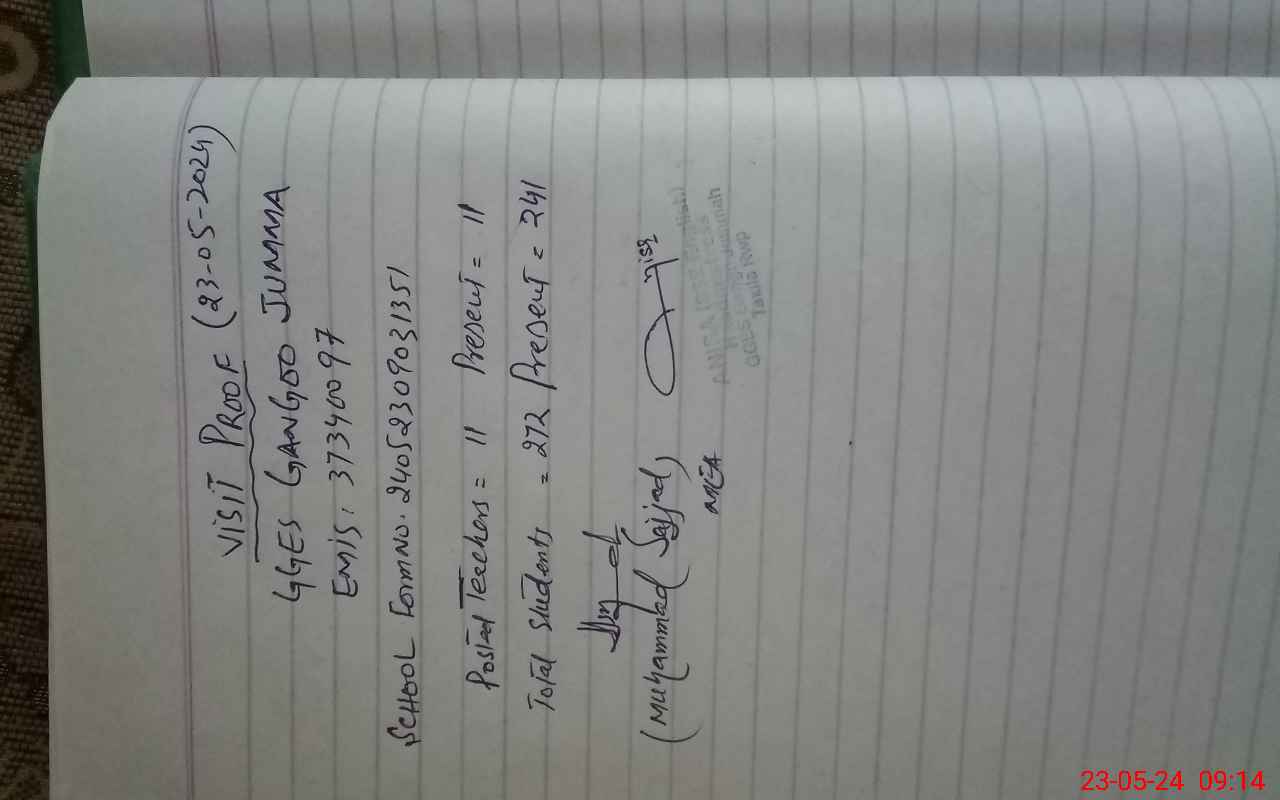 VISIT PROOF (23-05-2024)
GGES GANGOO JUMMA
EMIS: 37340097
SCHOOL Form No. 24052309031351
Posted Teachers = 11 Present = 11
Total Students = 272 Present = 241
(Muhammad Sajjad)
MEA
23-05-24 09:14